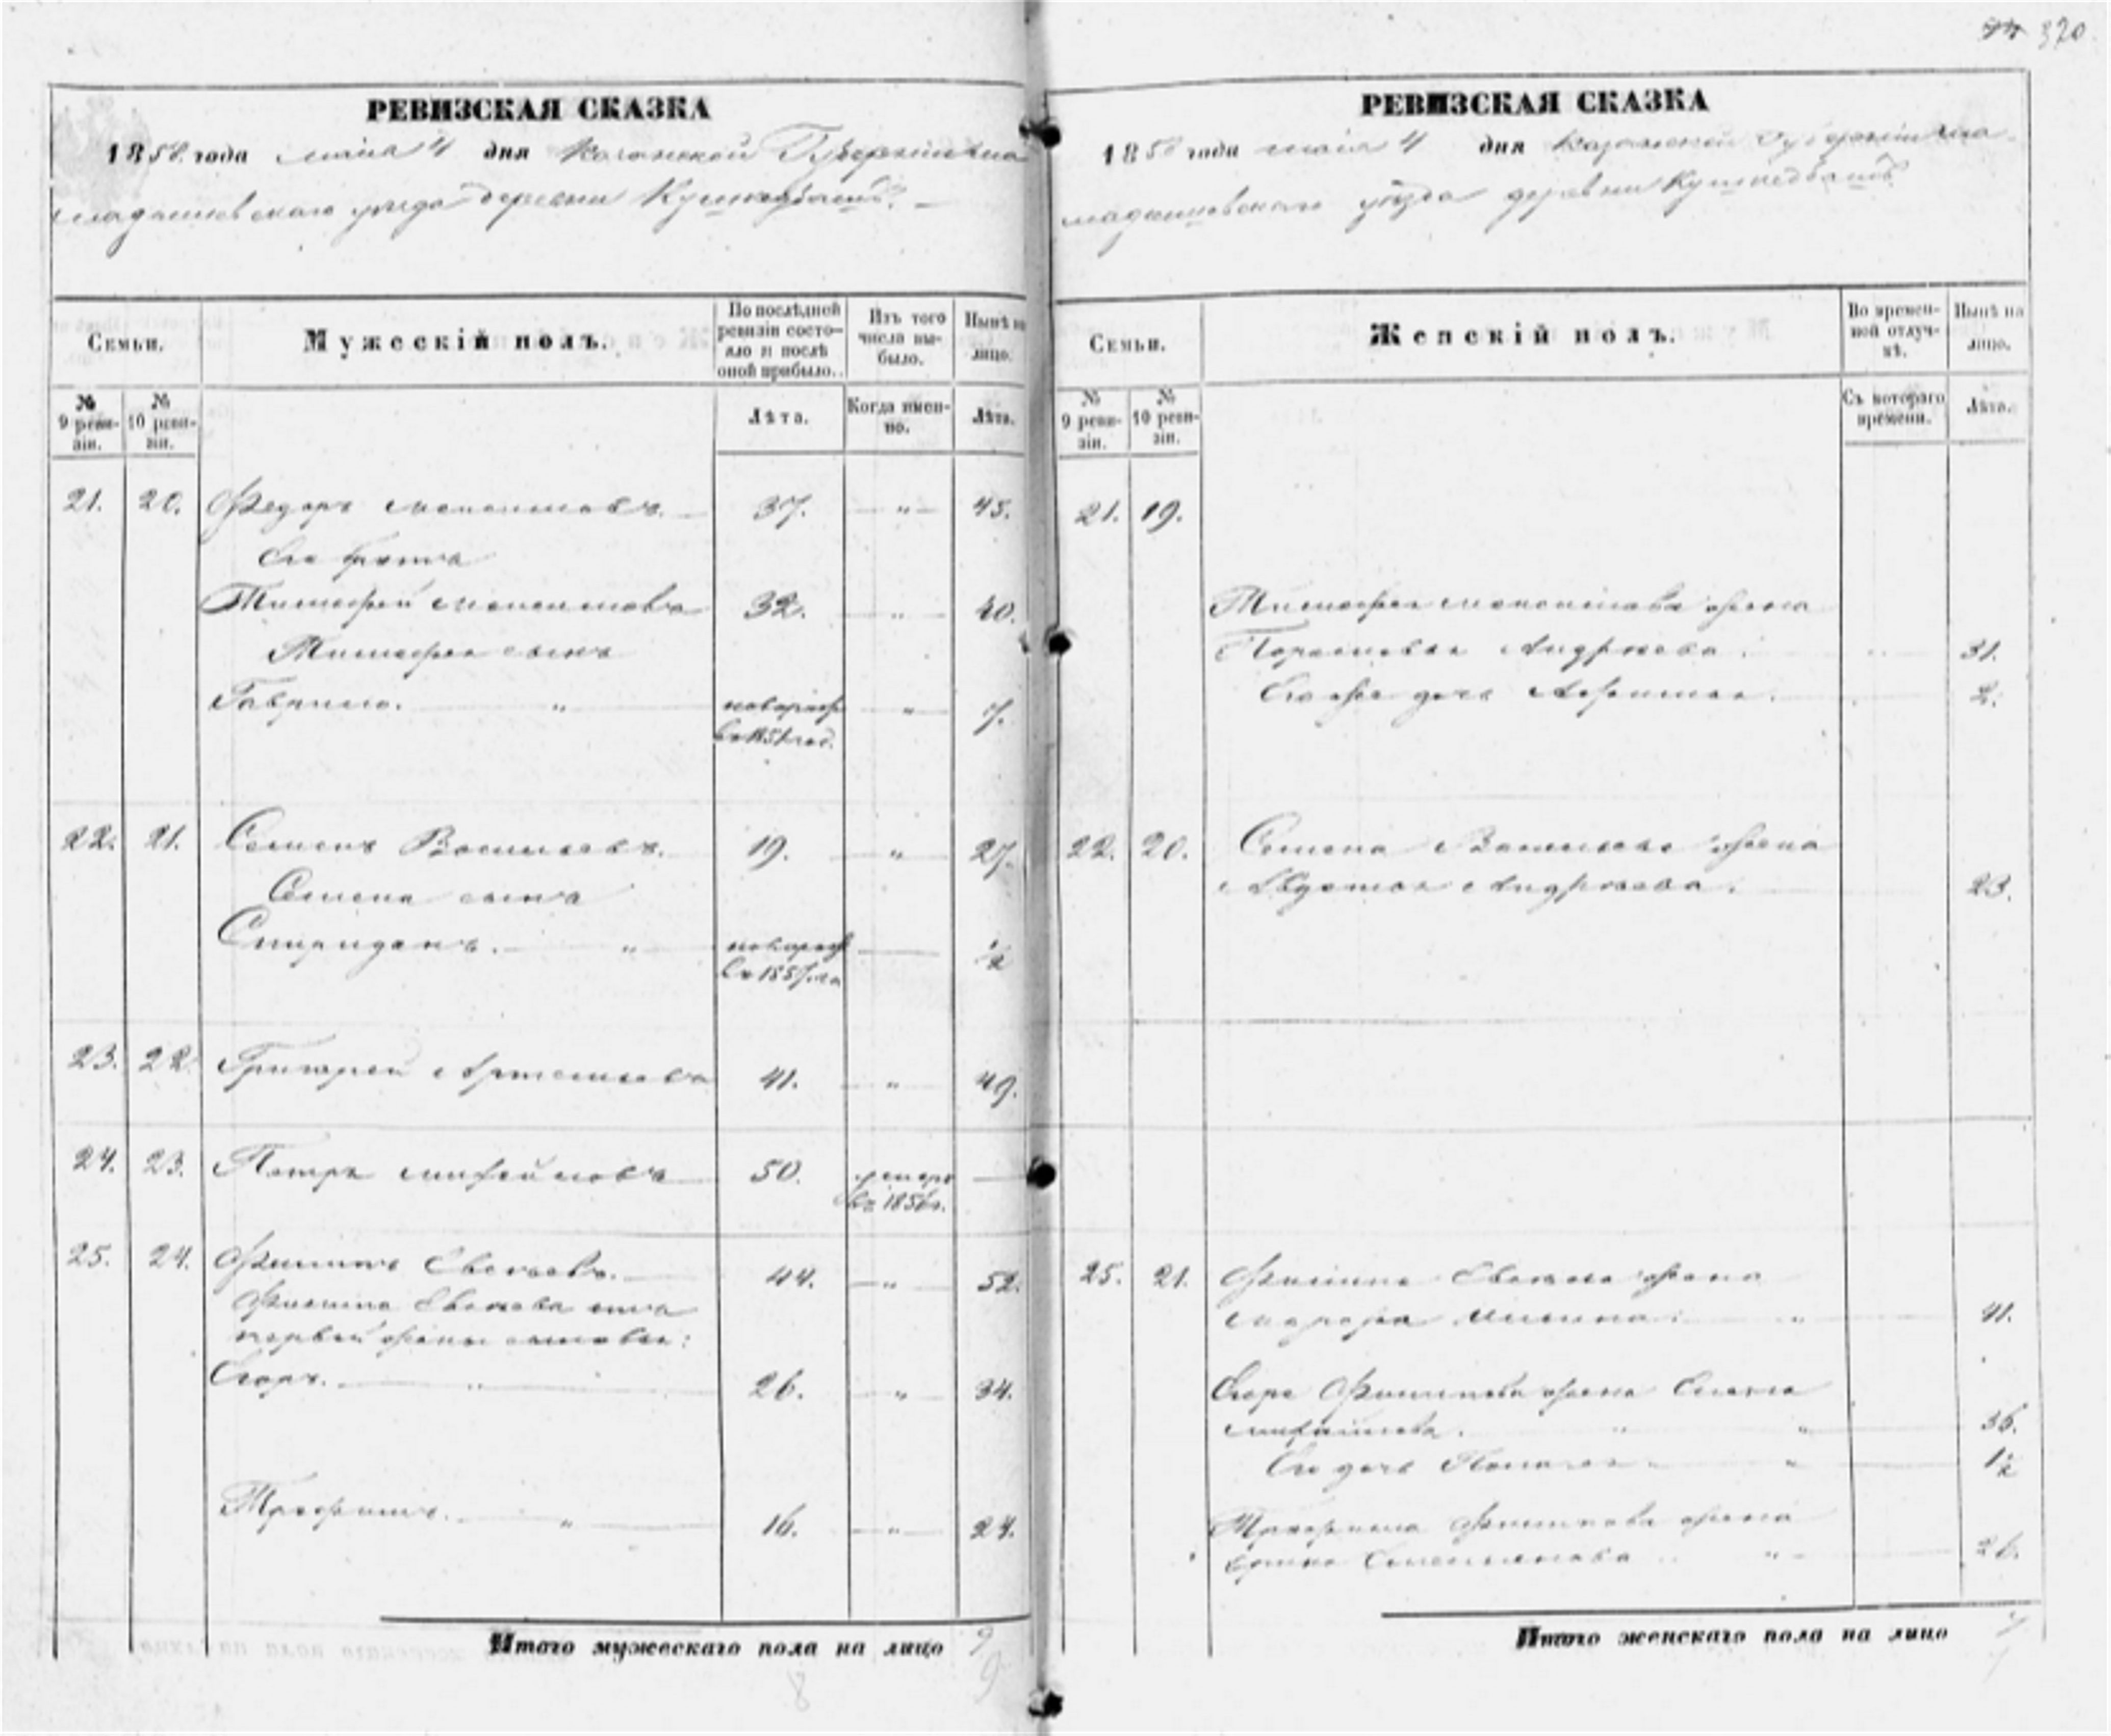 320
РЕВИЗСКАЯ СКАЗКА
1858 года мaiя 4 дня Казанской Губернiи ма
мадышевскаго уезда деревни
Семьи.
Мужескiй полъ.
По послѣдней ревизiи состо-
яло и послѣ
оной прибыло.
Изъ того
числа вы-
было.
Нынѣ на
лицо.
№
9 реви-
зiи.
№
10 реви-
зiи.
Лѣта.
Когда имен-
но.
Лѣта.
21. 20. Федоръ Максимовъ. 37. " 45.
Его братъ
Тимофей Максимовъ 32. " 40.
Тимофея сынъ
Гаврило. " новорож " 7.
въ 1851 год.
22. 21. Семенъ Васильевъ. 19. " 27.
Семена сынъ
Спиридонъ. " новорож ½
въ 1857 года
23. 22. Григорей Артемьевъ 41. " 49.
24. 23. Петръ Михайловъ 50. умеръ
въ 1856 г.
25. 24. Филипъ 44. " 52.
Филипа отъ
первой жены сыновья:
Егоръ. " 26. " 34.
Трофимъ. " 16. " 24.
Итого мужескаго пола на лицо 9
9
8
РЕВИЗСКАЯ СКАЗКА
1858 года маiя 4 дня Казанской Губернiи ма-
мадышевскаго уезда деревни
Семьи.
Женскiй полъ.
Во времен-
ной отлуч-
кѣ.
Нынѣ на
лицо.
№
9 реви-
зiи.
№
10 реви-
зiи.
Съ котораго
времени.
Лѣта.
21. 19.
Тимофея Максимова жена
Андреева. 31.
Его же дочь 2.
22. 20. Семена Васильева жена
Авдотья Андреева. 23.
25. 21. Филипа жена
" 41.
Егора Филипова жена Елена
Михайлова. " " 36.
Его дочь " 1½
Трофима Филипова жена
" 26.
Итого женскаго пола на лицо 7